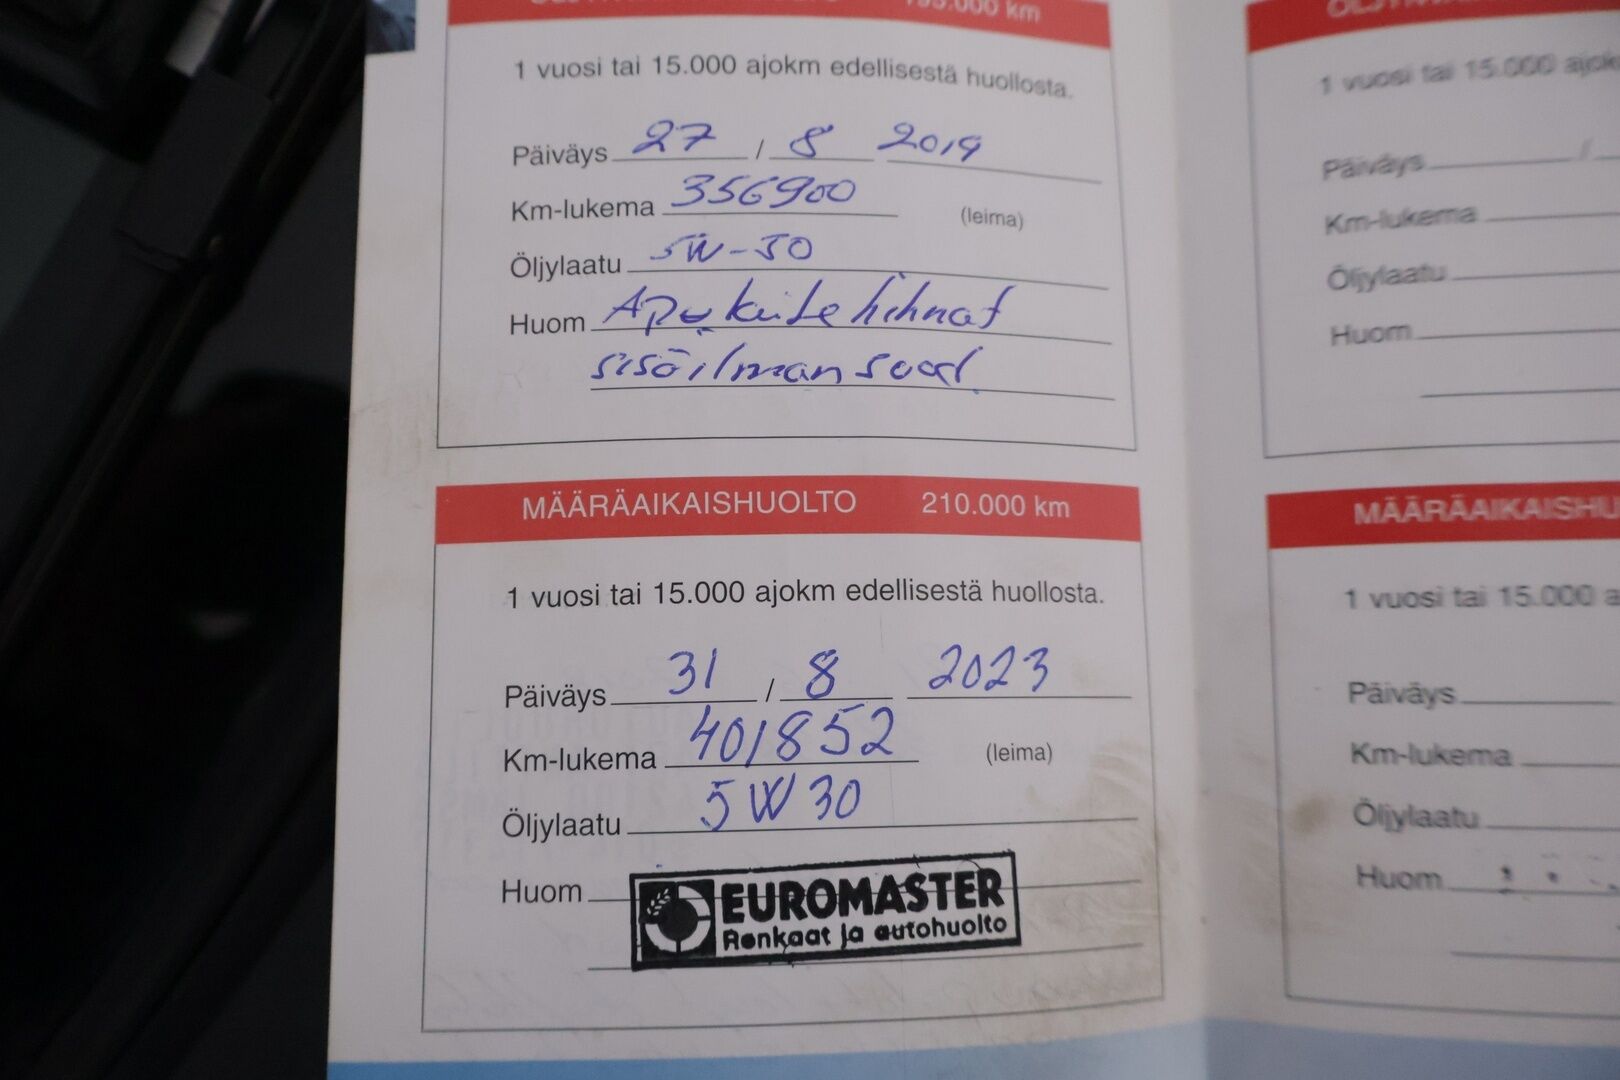 195.000 km
1 vuosi tai 15.000 ajokm edellisestä huollosta.
Päiväys 27 / 8 2019
Km-lukema 356900 (leima)
Öljylaatu 5W-30
Huom Apukite hihnat
sisäilman suod.
MÄÄRÄAIKAISHUOLTO 210.000 km
1 vuosi tai 15.000 ajokm edellisestä huollosta.
Päiväys 31 / 8 2023
Km-lukema 401852 (leima)
Öljylaatu 5W30
Huom
EUROMASTER
Renkaat ja autohuolto
1 vuosi tai 15.000
Päiväys /
Km-lukema
Öljylaatu
Huom
MÄÄRÄAIKAISHU
1 vuosi tai 15.000 a
Päiväys
Km-lukema
Öljylaatu
Huom